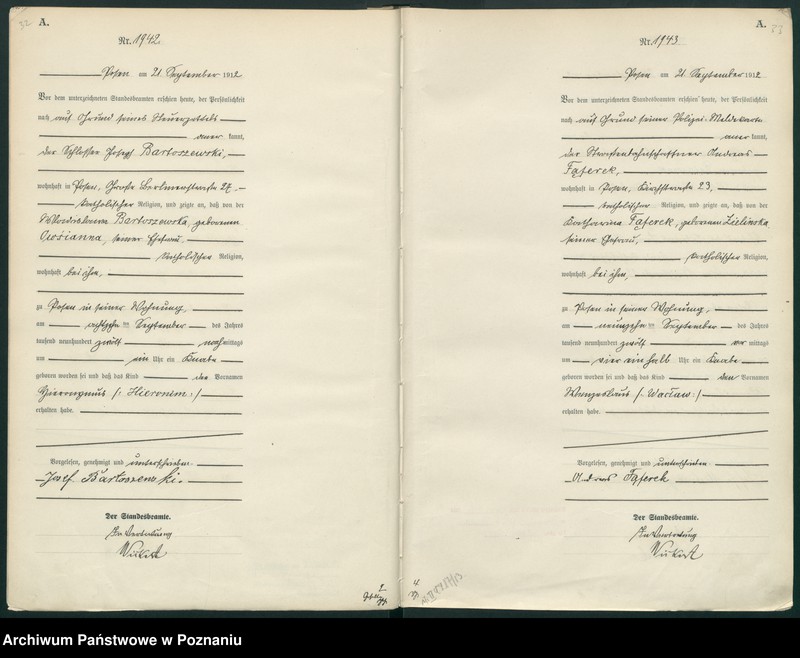 32
A.
Nr. 1942
Posen am 21. September 1912
Vor dem unterzeichneten Standesbeamten erschien heute, der Persönlichkeit
nach auf Grund seines Steuerzettels
aner kannt,
der Schlosser Josef Bartoszewski,
wohnhaft in Posen, Große Berlinerstraße 27.
katholischer Religion, und zeigte an, daß von der
Wladislawa Bartoszewska, geborenen
seiner Ehefrau,
katholischer Religion,
wohnhaft bei ihm,
zu Posen in seiner Wohnung,
am achtzehn ten September des Jahres
tausend neunhundert zwölf nachmittags
um ein Uhr ein Knabe
geboren worden sei und daß das Kind den Vornamen
Hieronymus /: Hieronim :/
erhalten habe.
Vorgelesen, genehmigt und unterschrieben
Josef Bartoszewski.
Der Standesbeamte.
In Vertretung
A.
33
Nr. 1943
Posen am 21. September 1912
Vor dem unterzeichneten Standesbeamten erschien heute, der Persönlichkeit
nach auf Grund seiner Polizei-Meldekarte
aner kannt,
der Straßenbahnschaffner Andreas
Fąferek,
wohnhaft in Posen, Kirchstraße 23,
katholischer Religion, und zeigte an, daß von der
Katharina Fąferek, geborenen Zielińska
seiner Ehefrau,
katholischer Religion,
wohnhaft bei ihm,
zu Posen in seiner Wohnung,
am neunzehn ten September des Jahres
tausend neunhundert zwölf vor mittags
um vier einhalb Uhr ein Knabe
geboren worden sei und daß das Kind den Vornamen
Wenzeslaus /: Wacław :/
erhalten habe.
Vorgelesen, genehmigt und unterschrieben
Fąferek
Der Standesbeamte.
In Vertretung
Archiwum Państwowe w Poznaniu